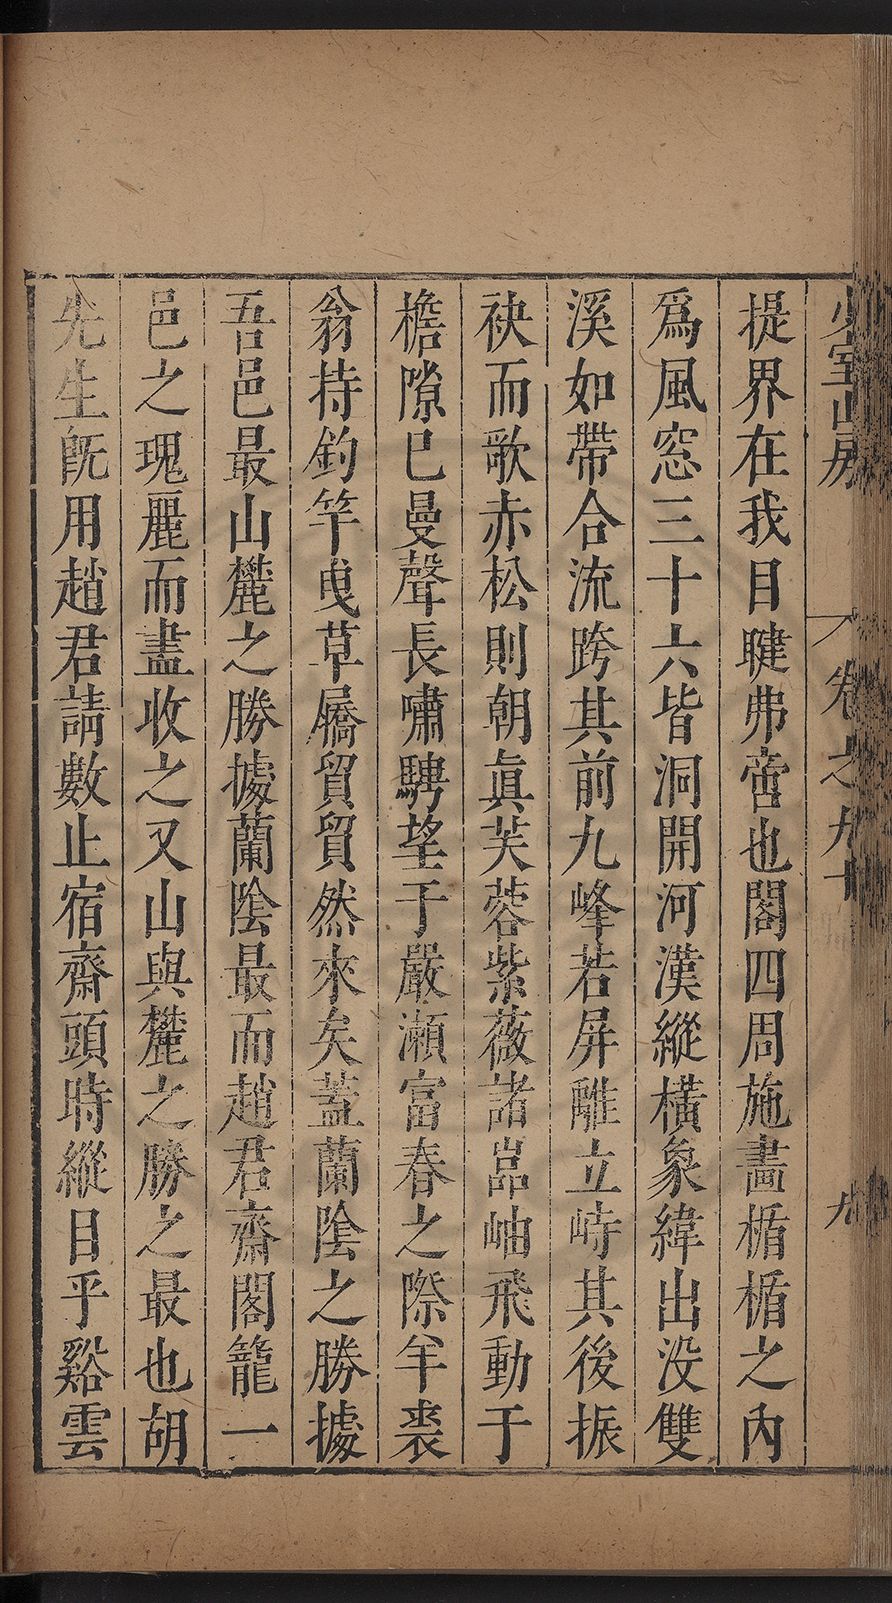 少室山房
卷之九十
九
提界在我目睫弗啻也閣四周施畫楯楯之內
爲風窓三十六皆洞開河漢縱橫象緯出没雙
溪如帶合流跨其前九峰若屏離立峙其後振
袂而歌赤松則朝眞芙蓉紫薇諸嵓岫飛動于
檐隙巳曼聲長嘯騁望于嚴瀨富春之際羊裘
翁持釣竿曳草屩貿貿然來矣蓋蘭陰之勝據
吾邑最山麓之勝據蘭陰最而趙君齋閣籠一
邑之瑰麗而盡收之又山與麓之勝之最也胡
先生旣用趙君請數止宿齋頭時縱目乎谿雲